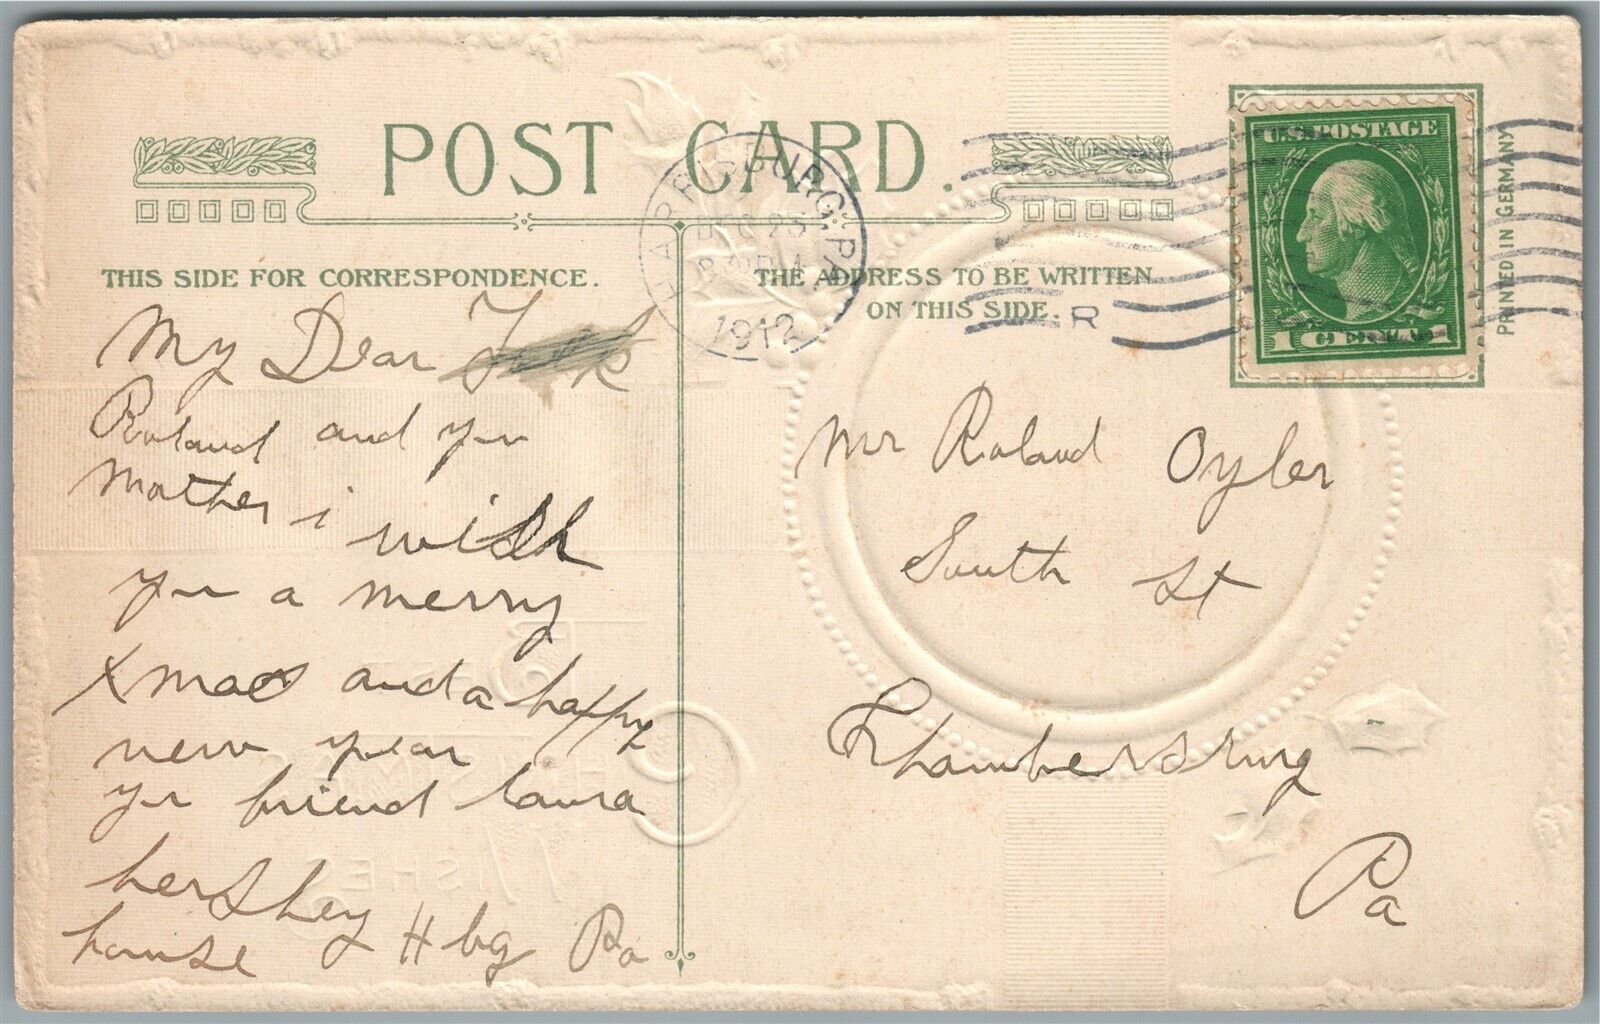 POST CARD.
HARRISBURG, PA.
DEC 23
1912
R
U.S. POSTAGE
1 CENTS 1
PRINTED IN GERMANY
THIS SIDE FOR CORRESPONDENCE.
My Dear
Roland and yu
Mother i wish
yu a merry
Xmas and a happy
new year
yr friend laura
hershey
house Hbg Pa
THE ADDRESS TO BE WRITTEN
ON THIS SIDE.
Mr Roland Oyler
South St
Chambersburg
Pa